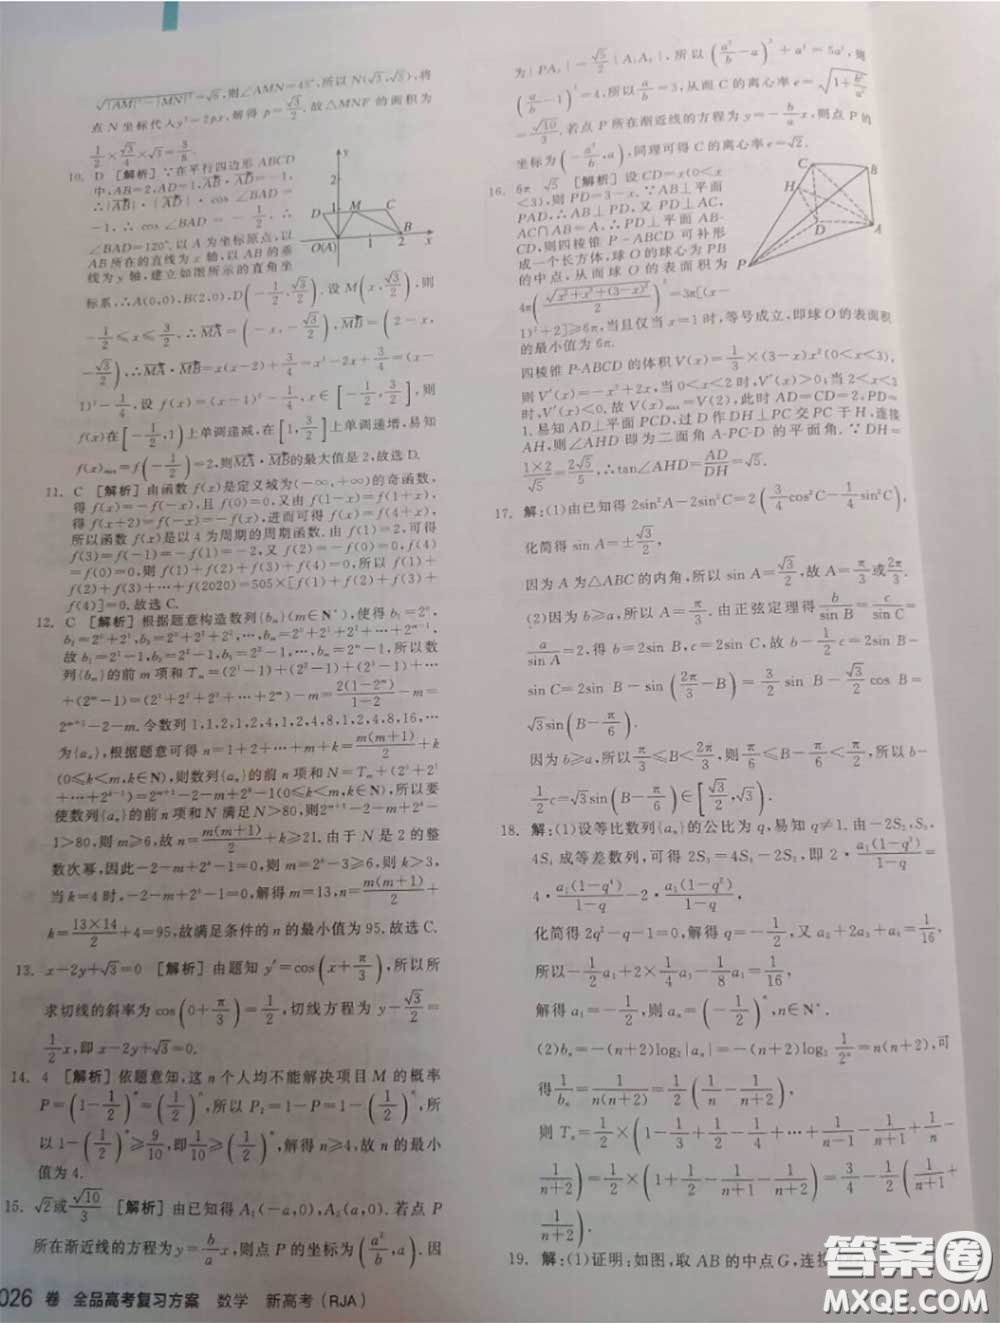 √|AM|²-|MN|²=√6,则∠AMN=45°,所以N(√3,√3),将
点N坐标代入y²=2px,解得p=√3/2.故△MNF的面积为
1/2×√3/4×√3=3/8.
10. D [解析] ∵在平行四边形ABCD
中,AB=2,AD=1,AB·AD=-1,
∴|AB|·|AD|·cos∠BAD=-1,
∴cos∠BAD=-1/2,∴
∠BAD=120°,以A为坐标原点,以
AB所在的直线为x轴,以AB的垂
线为y轴,建立如图所示的直角坐
标系,∴A(0,0),B(2,0),D(-1/2,√3/2).设M(x,√3/2),则
-1/2≤x≤3/2.∴MA=(-x,-√3/2),MB=(2-x,
-√3/2),∴MA·MB=x(x-2)+3/4=x²-2x+3/4=(x-
1)²-1/4,设f(x)=(x-1)²-1/4,x∈[-1/2,3/2],则
f(x)在[-1/2,1)上单调递减,在[1,3/2]上单调递增,易知
f(x)max=f(-1/2)=2,则MA·MB的最大值是2,故选D.
11. C [解析] 由函数f(x)是定义域为(-∞,+∞)的奇函数,
得f(x)=-f(-x),且f(0)=0,又由f(1-x)=f(1+x),
得f(x+2)=f(-x)=-f(x),进而可得f(x)=f(x+4),
所以函数f(x)是以4为周期的周期函数.由f(1)=2,可得
f(3)=f(-1)=-f(1)=-2,f(2)=f(0)=0,f(4)
=f(0)=0,则f(1)+f(2)+f(3)+f(4)=0,所以f(1)
+f(2)+f(3)+…+f(2020)=505×[f(1)+f(2)+f(3)+
f(4)]=0.故选C.
12. C [解析] 根据题意构造数列{bm}(m∈N*),使得b₁=2⁰,
b₂=2⁰+2¹,b₃=2⁰+2¹+2²,…,bm=2⁰+2¹+…+2ᵐ⁻¹,
故b₁=2¹-1,b₂=2²-1,…,bm=2ᵐ-1,所以数
列{bm}的前m项和Tm=(2¹-1)+(2²-1)+(2³-1)+…
+(2ᵐ-1)=2¹+2²+2³+…+2ᵐ-m=2(1-2ᵐ)/(1-2)-m=
2ᵐ⁺¹-2-m.令数列1,1,2,1,2,4,1,2,4,8,1,2,4,8,16,…
为{aₙ},根据题意可得n=1+2+…+m+k=m(m+1)/2+k
(0≤k<m,k∈N),则数列{aₙ}的前n项和N=Tm+(2⁰+2¹
+…+2ᵏ⁻¹)=2ᵐ⁺¹-2-m+2ᵏ-1(0≤k<m,k∈N),所以要
使数列{aₙ}的前n项和N满足N>80,则2ᵐ⁺¹-2-m+2ᵏ-
1>80,则m≥6,故n=m(m+1)/2+k≥21.由于N是2的整
数次幂,因此-2-m+2ᵏ-1=0,则m=2ᵏ-3≥6,则k>3,
当k=4时,-2-m+2⁴-1=0,解得m=13,n=m(m+1)/2+
k=13×14/2+4=95,故满足条件的n的最小值为95.故选C.
13. x-2y+√3=0 [解析] 由题知y'=cos(x+π/3),所以所
求切线的斜率为cos(0+π/3)=1/2,切线方程为y-√3/2=
1/2x,即x-2y+√3=0.
14. 4 [解析] 依题意知,这n个人均不能解决项目M的概率
P=(1-1/2)ⁿ=(1/2)ⁿ,所以P₁=1-P=1-(1/2)ⁿ,所
以1-(1/2)ⁿ≥9/10,即1/10≥(1/2)ⁿ,解得n≥4,故n的最小
值为4.
15. √2或√10/3 [解析] 由已知得A₁(-a,0),A₂(a,0).若点P
所在渐近线的方程为y=b/a x,则点P的坐标为(a²/b,a).因
026 卷 全品高考复习方案 数学 新高考(RJA)
为|PA₂|=√5/2|A₁A₂|,所以(a²/b-a)²+a²=5a²,则
(a/b-1)²=4,所以a/b=3,从而C的离心率e=√(1+b²/a²)=
√10/3.若点P所在的渐近线的方程为y=-b/a x,则点P的
坐标为(-a²/b,a),同理可得C的离心率e=√2.
16. 6π √5 [解析] 设CD=x(0<x
<3),则PD=3-x.∵AB⊥平面
PAD,∴AB⊥PD,又∵PD⊥AC,
AC∩AB=A,∴PD⊥平面AB-
CD,则四棱锥P-ABCD可补形
成一个长方体,球O的球心为PB
的中点,从而球O的表面积为
4π(√(x²+x²+(3-x)²)/2)²=3π[(x-
1)²+2]≥6π,当且仅当x=1时,等号成立,即球O的表面积
的最小值为6π.
四棱锥P-ABCD的体积V(x)=1/3×(3-x)x²(0<x<3),
则V'(x)=-x²+2x,当0<x<2时,V'(x)>0;当2<
x<3时,V'(x)<0.故V(x)max=V(2),此时AD=CD=2,PD=
1.易知AD⊥平面PCD,过D作DH⊥PC交PC于H,连接
AH,则∠AHD即为二面角A-PC-D的平面角.∵DH=
1×2/√5=2√5/5,∴tan∠AHD=AD/DH=√5.
17. 解:(1)由已知得2sin²A-2sin²C=2(3/4cos²C-1/4sin²C),
化简得sin A=±√3/2,
因为A为△ABC的内角,所以sin A=√3/2,故A=π/3或2π/3.
(2)因为b≥a,所以A=π/3.由正弦定理得b/sin B=c/sin C=
a/sin A=2,得b=2sin B,c=2sin C,故b-1/2c=2sin B-
sin C=2sin B-sin(2π/3-B)=3/2sin B-√3/2cos B=
√3sin(B-π/6).
因为b≥a,所以π/3≤B<2π/3,则π/6≤B-π/6<π/2,所以b-
1/2c=√3sin(B-π/6)∈[√3/2,√3).
18. 解:(1)设等比数列{aₙ}的公比为q,易知q≠1.由-2S₂,S₃,
4S₄成等差数列,可得2S₃=4S₄-2S₂,即2·a₁(1-q³)/(1-q)=
4·a₁(1-q⁴)/(1-q)-2·a₁(1-q²)/(1-q).
化简得2q²-q-1=0,解得q=-1/2,又a₂+2a₃+a₄=1/16,
所以-1/2a₁+2×1/4a₁-1/8a₁=1/16,
解得a₁=-1/2,则aₙ=(-1/2)ⁿ,n∈N*.
(2)bₙ=-(n+2)log₂|aₙ|=-(n+2)log₂1/2ⁿ=n(n+2),可
得1/bₙ=1/n(n+2)=1/2(1/n-1/(n+2)),
则Tₙ=1/2×(1-1/3+1/2-1/4+…+1/(n-1)-1/(n+1)+1/n
-1/(n+2))=1/2×(1+1/2-1/(n+1)-1/(n+2))=3/4-1/2(1/(n+1)+
1/(n+2)).
19. 解:(1)证明:如图,取AB的中点G,连接
y
2
1
D
M
C
O(A)
1
2
B
x
C
B
H
D
A
P
答案圈
MXQE.COM